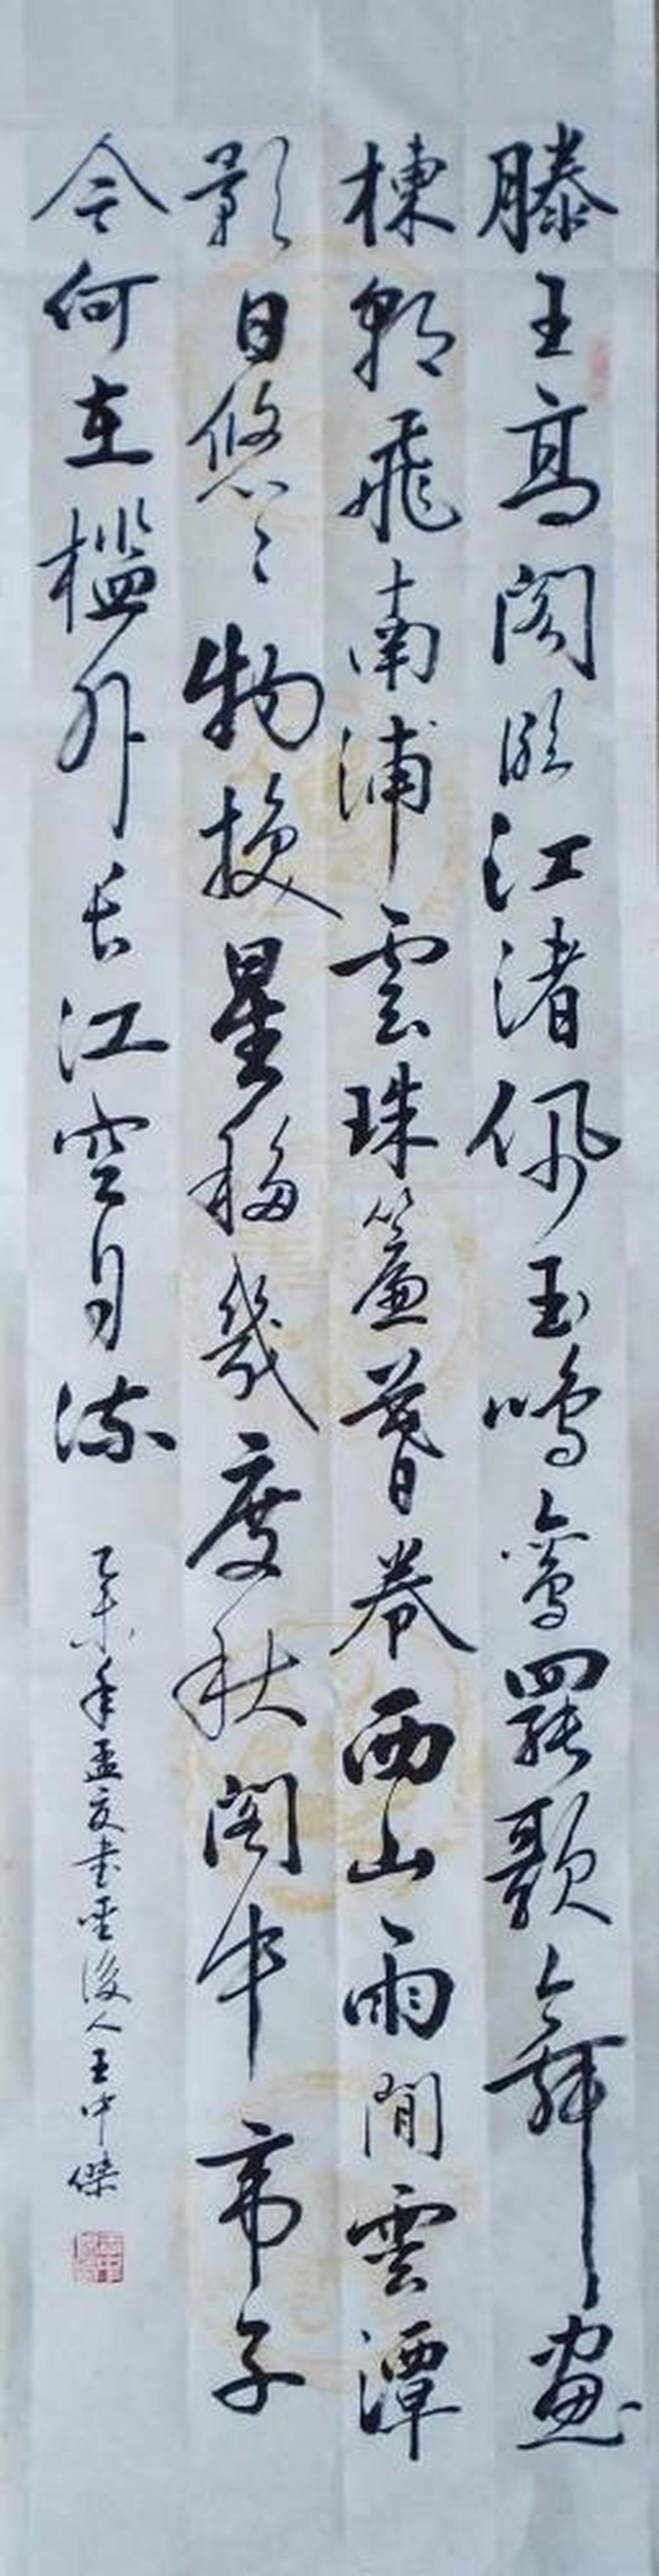 滕王高阁临江渚佩玉鸣鸾罢歌舞画
栋朝飞南浦雲珠簾暮卷西山雨閒雲潭
影日悠〻物换星移幾度秋阁中帝子
今何在槛外长江空自流
乙未年孟夏书圣后人王中傑